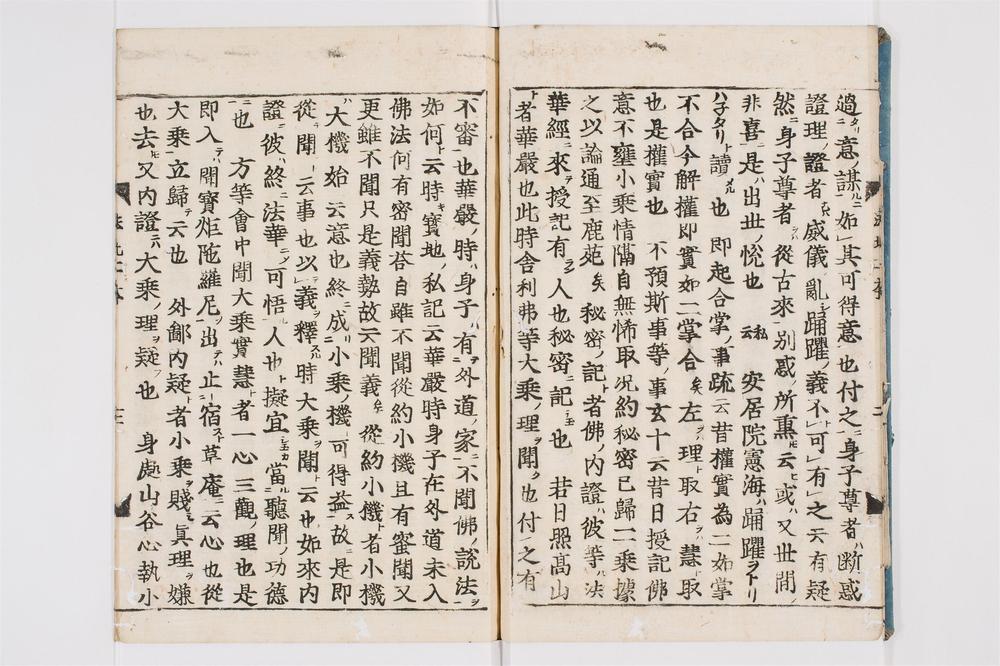 過タリ二意ノ謀ルニ一如ニ其可得意也付之ニ身子尊者ハ斷惑
證理ノ證者ナレ威儀ノ亂シ踊躍義不ト可有之云有疑
然ニ身子尊者ラハ從古來別惑ノ所熏モ云ヒ或ハ又世間ノ
非喜ニ是ハ出世ノ悅也 私云 安居院憲海ハ踊躍ヲトリ
ハ子タリト讀メル也 即起合掌ノ事疏云昔權實為二如掌
不合今解權即實如二掌合矣左ヲハ理ト取右ヲハ慧取
也是權實也 不預斯事等ノ事玄十云昔日授記佛
意不壅小乗情隔自無悕取况約秘密已歸一乗據
之以論通至鹿苑矣秘密ノ記ト者佛ノ内證ハ彼等ハ法
華經ニ來テ授記有ラン人也秘密ニ記シ玉也 若日照髙山
ト者華嚴也此時舎利弗等大乗ノ理ヲ聞ク也付之有
不審也華嚴ノ時ハ身子ハ有ヲ二外道ノ家ニ一不聞佛ノ說法ヲ
如何ト云時キ寳地ノ私記云華嚴時身子在外道未入
佛法何有密聞荅自雖不聞從約小機且有蜜聞又
更雖不聞只是義勢故云聞義矣從約小機ト者小機
ハ大機始云意也終ニ成リ小乗ノ機ト可得益ス故ニ是即
從ラ聞一云事也以テ義ヲ釋スル時大乗ヲ聞ト云也如來内
證ニ彼ハ終ニ法華ニノ可悟ル人也ト擬宜シ玉カ當ル聽聞ノ功德
ニ一也 方等會中聞大乗實慧ト者一心三觀ノ理也是
即入テハ二開寳炬陁羅尼ヲ出テハ止ニ宿スト草庵ニ云心也從
大乗立歸テ云也 外鄙内疑ト者小乗ヲ賤シ眞理ヲ嫌
也去モ又内證ニハ大乗ノ理ヲ疑フ也 身處山谷心執小